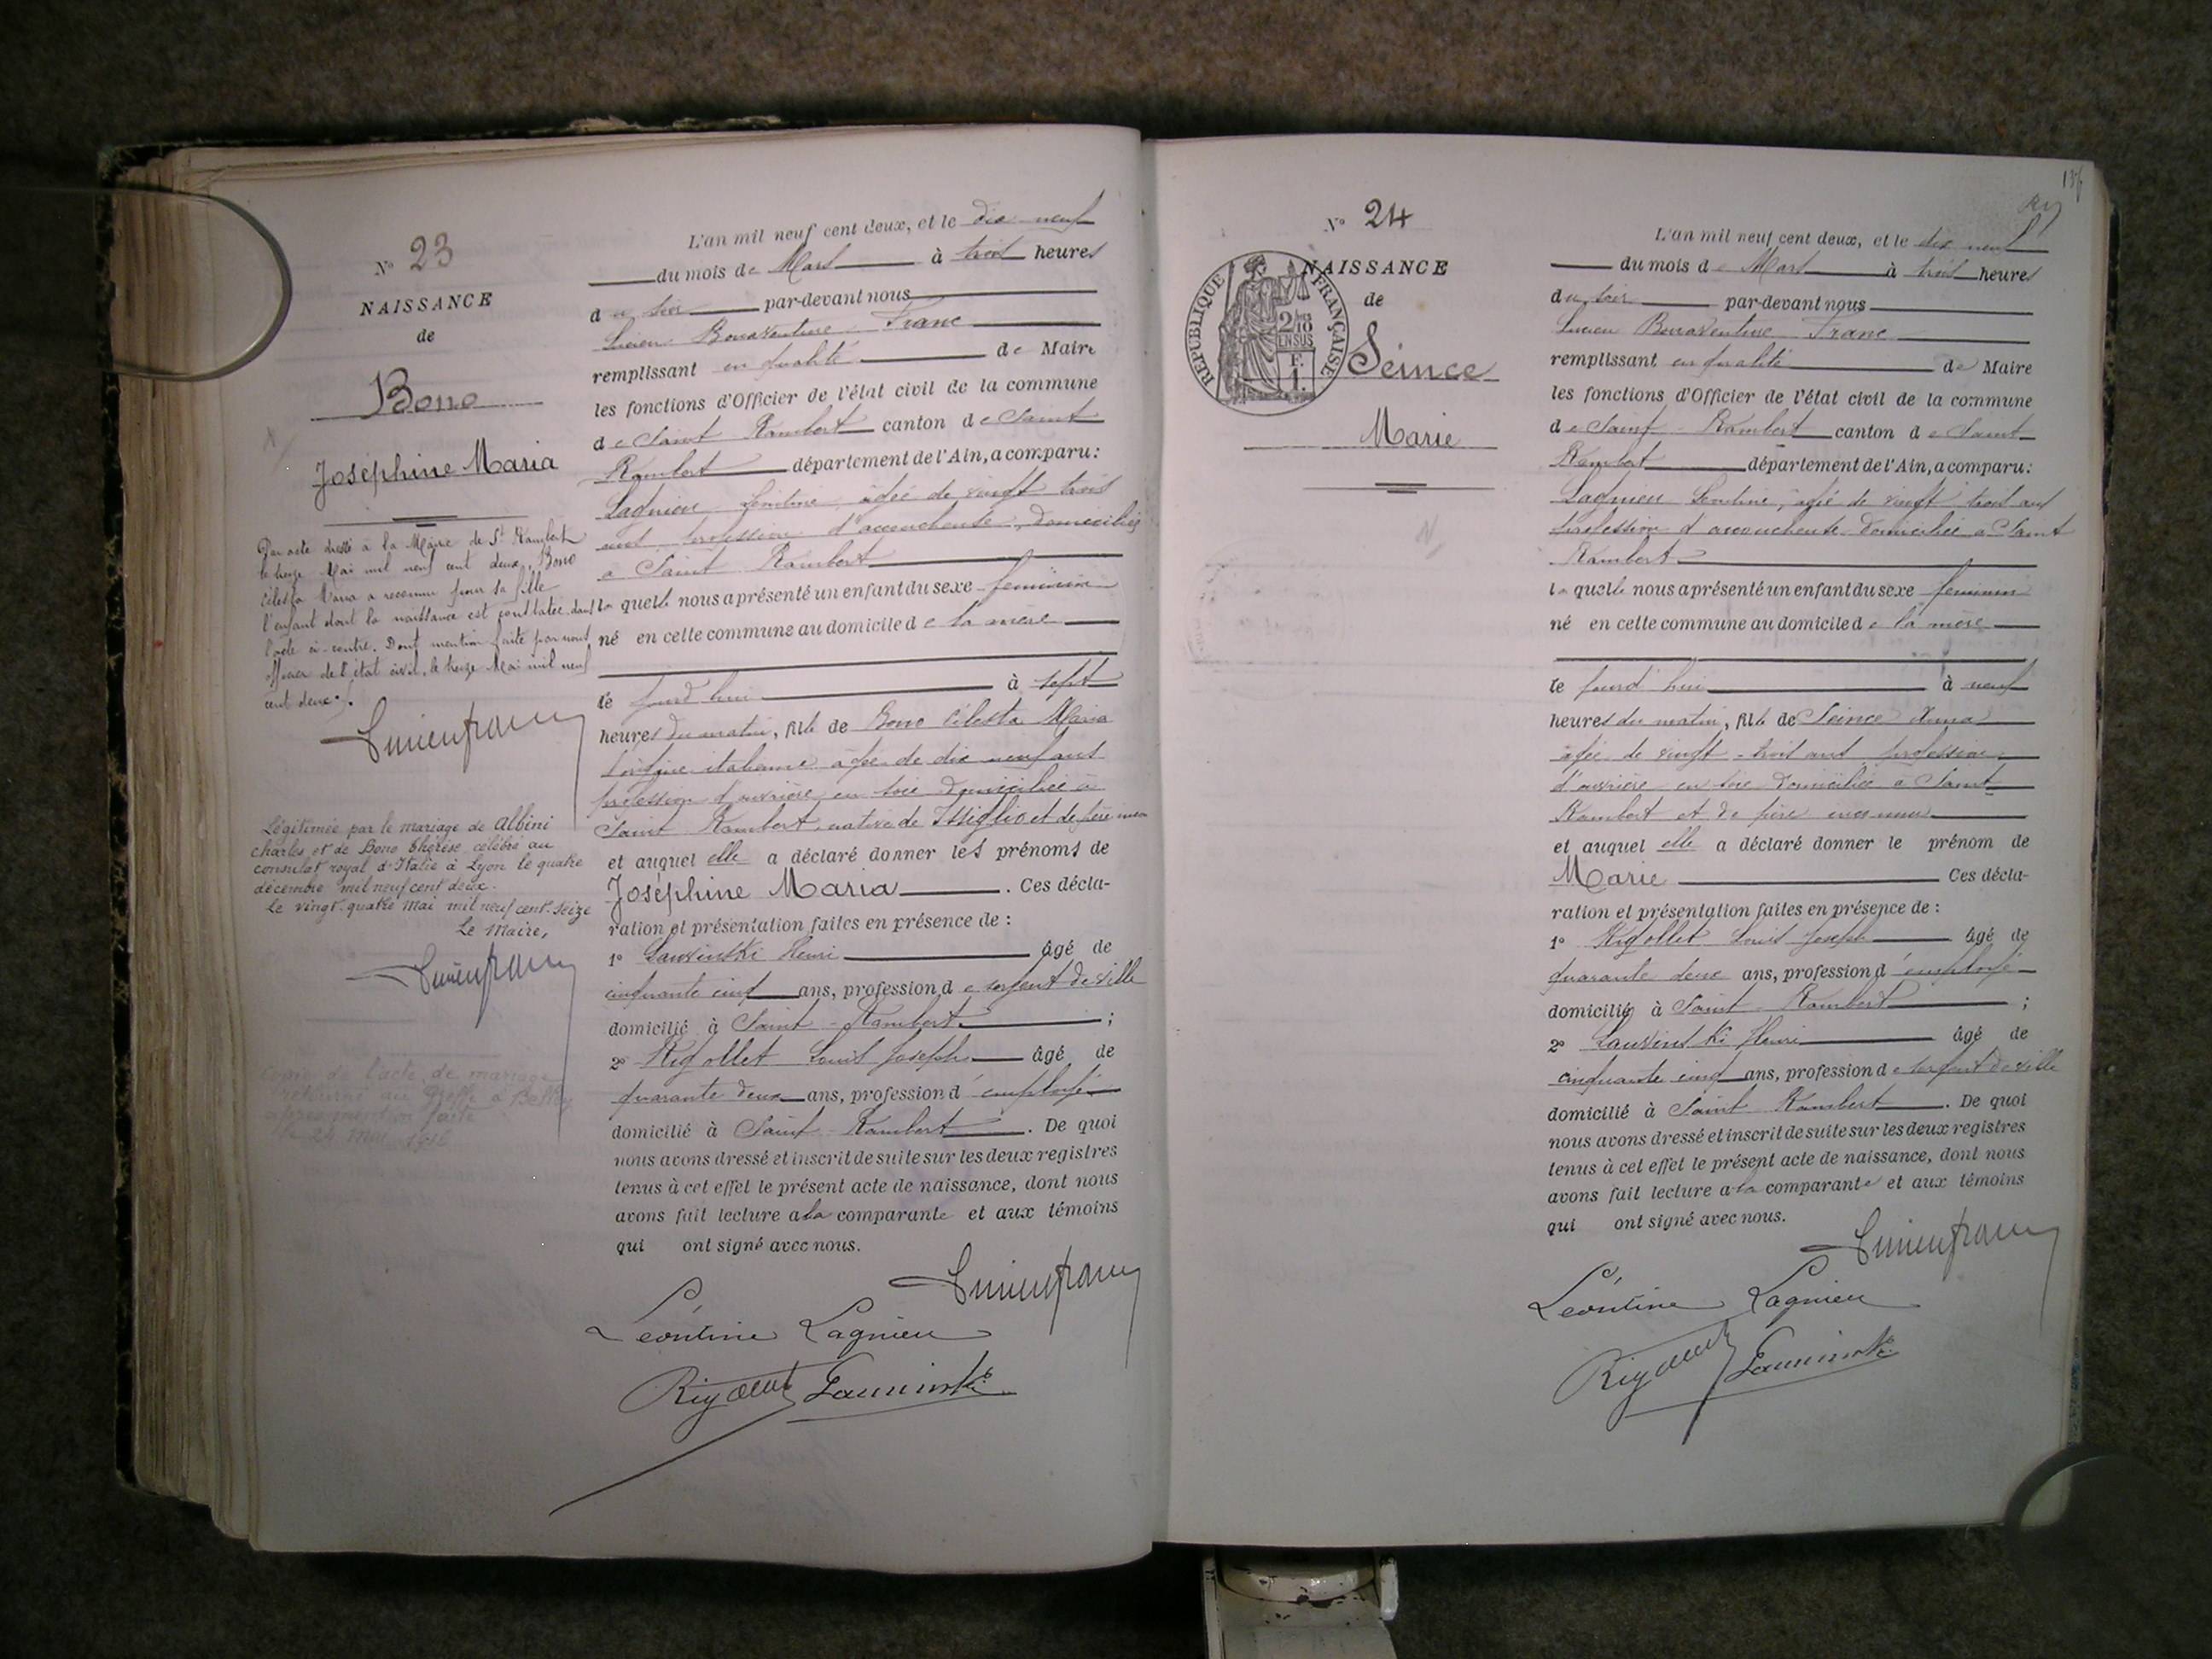 N° 23
NAISSANCE
de
Bono
Joséphine Maria
Par acte dressé à la Mairie de St Rambert
le treize Mai mil neuf cent deux, Bono
Célesta Maria a reconnu pour sa fille
l'enfant dont la naissance est constatée dans
l'acte ci-contre. Dont mention faite par nous
officier de l'état civil, le treize Mai mil neuf
cent deux.
Lucien franc
Légitimée par le mariage de Albini
Charles et de Bono thérèse célébré au
consulat royal d'Italie à Lyon le quatre
décembre mil neuf cent deux.
Le vingt-quatre mai mil neuf cent seize
Le Maire,
Lucien franc
Copie de l'acte de mariage
retourné au Greffe à Belley
après mention faite
le 24 mai 1916
L'an mil neuf cent deux, et le dix neuf
du mois de Mars à trois heures
du soir par-devant nous
Lucien Bonaventure Franc
remplissant en qualité de Maire
les fonctions d'Officier de l'état civil de la commune
de Saint Rambert canton de Saint
Rambert département de l'Ain, a comparu:
Lagnieu Léontine, âgée de vingt trois
ans profession d'accoucheuse, domiciliée
à Saint Rambert
laquelle nous a présenté un enfant du sexe feminin
né en cette commune au domicile de la mère
le jourd'hui à sept
heures du matin, fille de Bono Célesta Maria
d'origine italienne âgée de dix neuf ans
profession d'ouvrière en soie domiciliée à
Saint Rambert, native de Issiglio et de père inconnu
et auquel elle a déclaré donner les prénoms de
Joséphine Maria. Ces décla-
ration et présentation faites en présence de :
1° Lausinski Henri âgé de
cinquante cinq ans, profession de sergent de ville
domicilié à Saint-Rambert ;
2° Rigollet Louis Joseph âgé de
quarante deux ans, profession d'employé
domicilié à Saint-Rambert. De quoi
nous avons dressé et inscrit de suite sur les deux registres
tenus à cet effet le présent acte de naissance, dont nous
avons fait lecture à la comparante et aux témoins
qui ont signé avec nous.
Lucien franc
Léontine Lagnieu
N° 24
NAISSANCE
de
REPUBLIQUE FRANÇAISE
2/10
EN SUS
F.
1.
Seince
Marie
L'an mil neuf cent deux, et le dix neuf
du mois de Mars à trois heures
du soir par-devant nous
Lucien Bonaventure Franc
remplissant en qualité de Maire
les fonctions d'Officier de l'état civil de la commune
de Saint-Rambert canton de Saint
Rambert département de l'Ain, a comparu:
Lagnieu Léontine, âgée de vingt trois ans
profession d'accoucheuse domiciliée à Saint
Rambert
laquelle nous a présenté un enfant du sexe feminin
né en cette commune au domicile de la mère
le jourd'hui à neuf
heures du matin, fille de Seince Anna
âgée de vingt-trois ans profession
d'ouvrière en soie domiciliée à Saint
Rambert et de père inconnu
et auquel elle a déclaré donner le prénom de
Marie Ces décla-
ration et présentation faites en présence de :
1° Rigollet Louis Joseph âgé de
quarante deux ans, profession d'employé
domicilié à Saint-Rambert ;
2° Lausinski Henri âgé de
cinquante cinq ans, profession de sergent de ville
domicilié à Saint Rambert. De quoi
nous avons dressé et inscrit de suite sur les deux registres
tenus à cet effet le présent acte de naissance, dont nous
avons fait lecture à la comparante et aux témoins
qui ont signé avec nous.
Lucien franc
Léontine Lagnieu